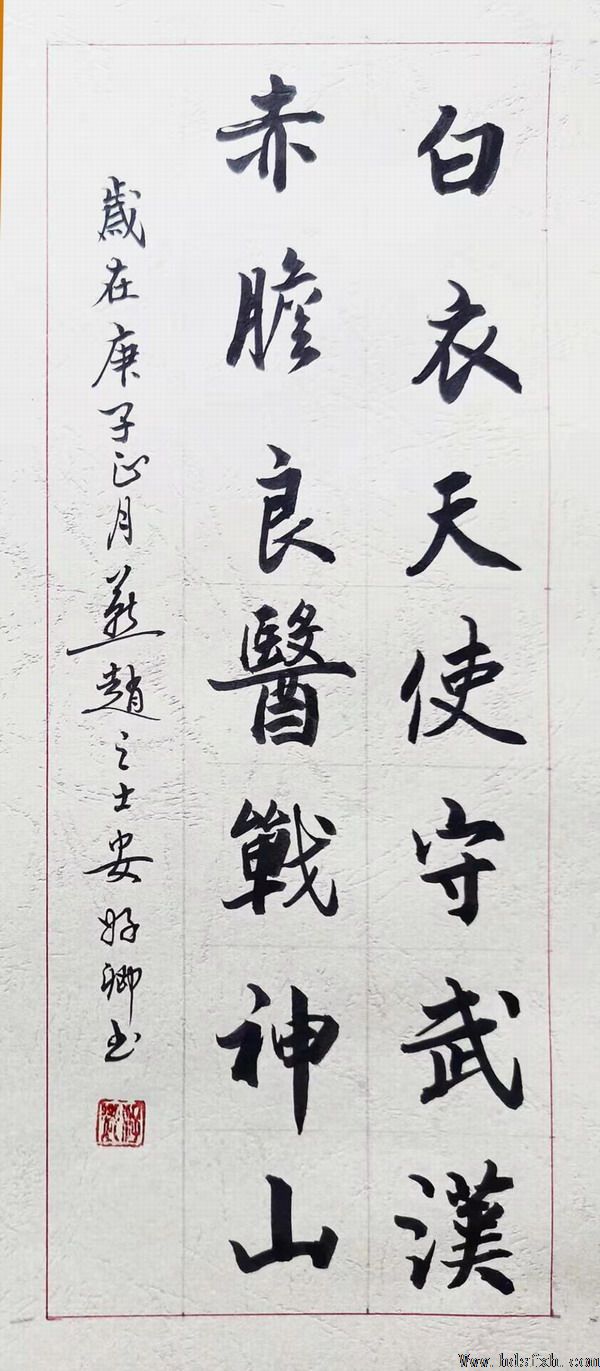 白衣天使守武漢
赤膽良醫戰神山
歲在庚子正月燕趙之士安好卿书